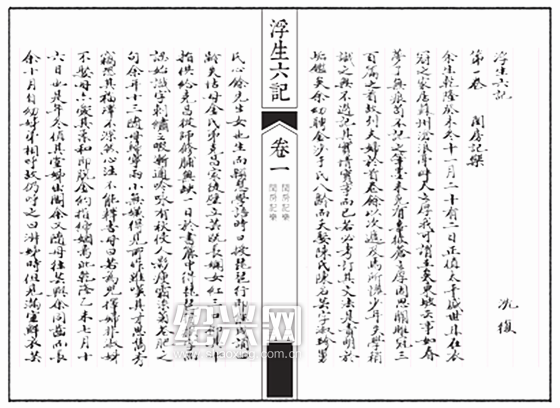 浮生六記
第一卷　閨房記樂
沈復
余生乾隆癸未冬十一月二十有二日正值太平盛世且在衣
冠之家居蘇州滄浪亭畔天之厚我可謂至矣東坡云事如春
夢了無痕苟不記之筆墨未免有辜彼蒼之厚因思關雎冠三
百篇之首故列夫婦於首卷余以次遞及焉所愧少年失學稍
識之無不過記其實情實事而已若必考訂其文法是責明於
垢鑑矣余幼聘金沙于氏八齡而夭娶陳氏陳名芸字淑珍舅
浮生六記
卷一
閨房記樂
閨房記樂
氏心余先生女也生而穎慧學語時口授琵琶行即能成誦四
齡失怙母金氏弟克昌家徒壁立芸既長嫻女紅三口仰其十
指供給克昌從師修脯無缺一日於書簏中得琵琶行挨字而
認始識字刺繡之暇漸通吟咏有秋侵人影瘦霜染菊花肥之
句余年十三隨母歸寧兩小無嫌得見所作雖嘆其才思雋秀
竊恐其福澤不深然心注不能釋告母曰若為兒擇婦非淑姊
不娶母亦愛其柔和即脫金約指締姻焉此乾隆乙未七月十
六日也是年冬值其堂姊出閣余又隨母往芸與余同齒而長
余十月自幼姊弟相呼故仍呼之曰淑姊時但見滿室鮮衣芸
紹興网
www.shaoxing.com.cn